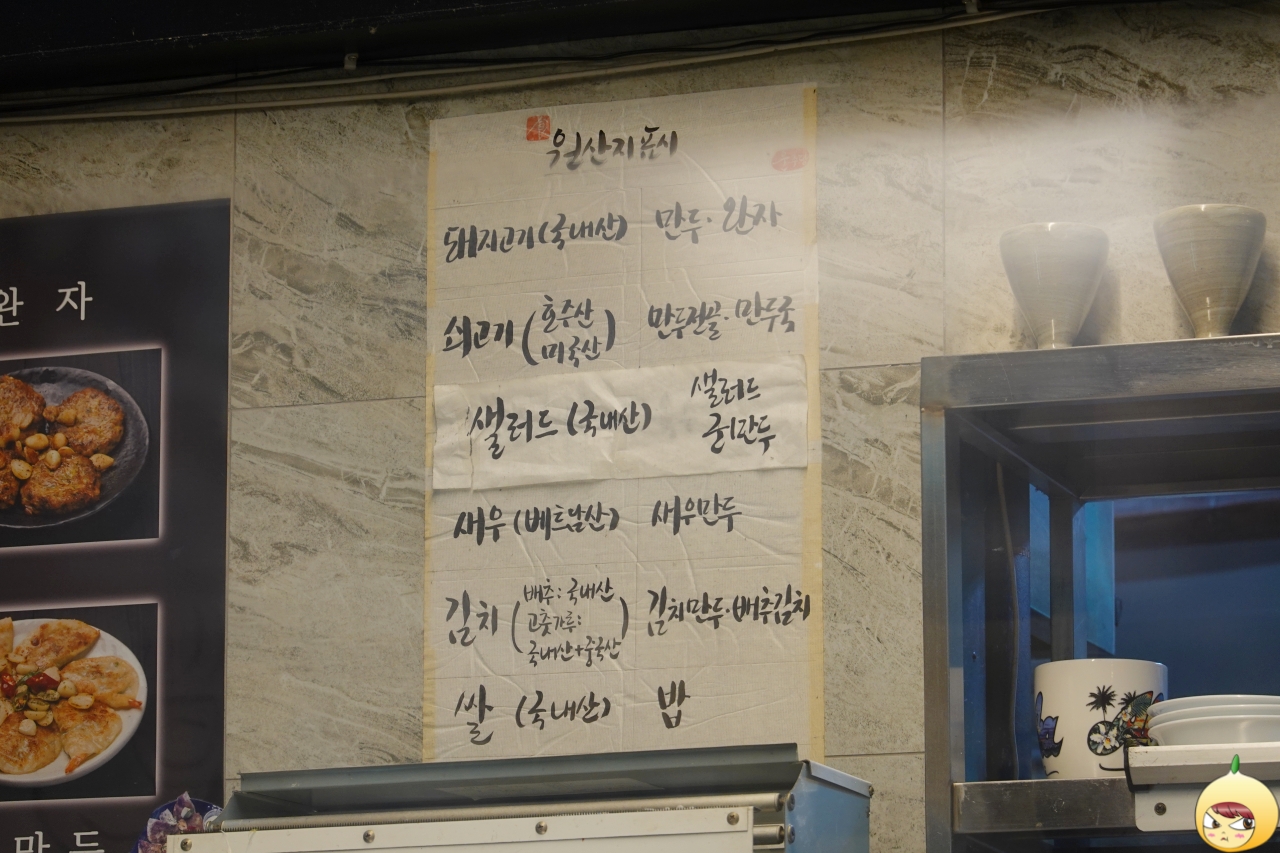 원산지표시
돼지고기(국내산) 만두·완자
쇠고기(호주산 미국산) 만두전골·만두국
샐러드(국내산) 샐러드 군만두
새우(베트남산) 새우만두
김치(배추:국내산 고춧가루: 국내산+중국산) 김치만두·배추김치
쌀(국내산) 밥
완자
만두